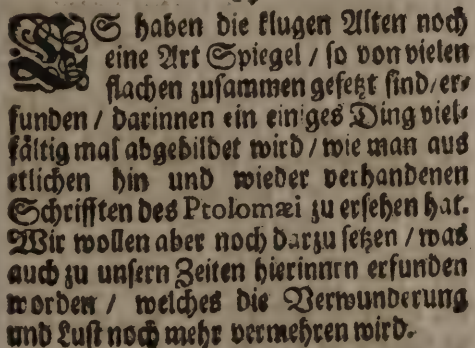 ES haben die klugen Alten noch
eine Art Spiegel / so von vielen
flachen zusammen gesetzt sind / er⸗
funden / darinnen ein einiges Ding viel⸗
fältig mal abgebildet wird / wie man aus
etlichen hin und wieder verhandenen
Schrifften des Ptolomæi zu ersehen hat.
Wir wollen aber noch darzu setzen / was
auch zu unsern Zeiten hierinnen erfunden
worden / welches die Verwunderung
und Lust noch mehr vermehren wird.